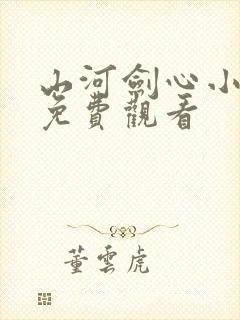 山河劍心小
免費觀看
董雲虎